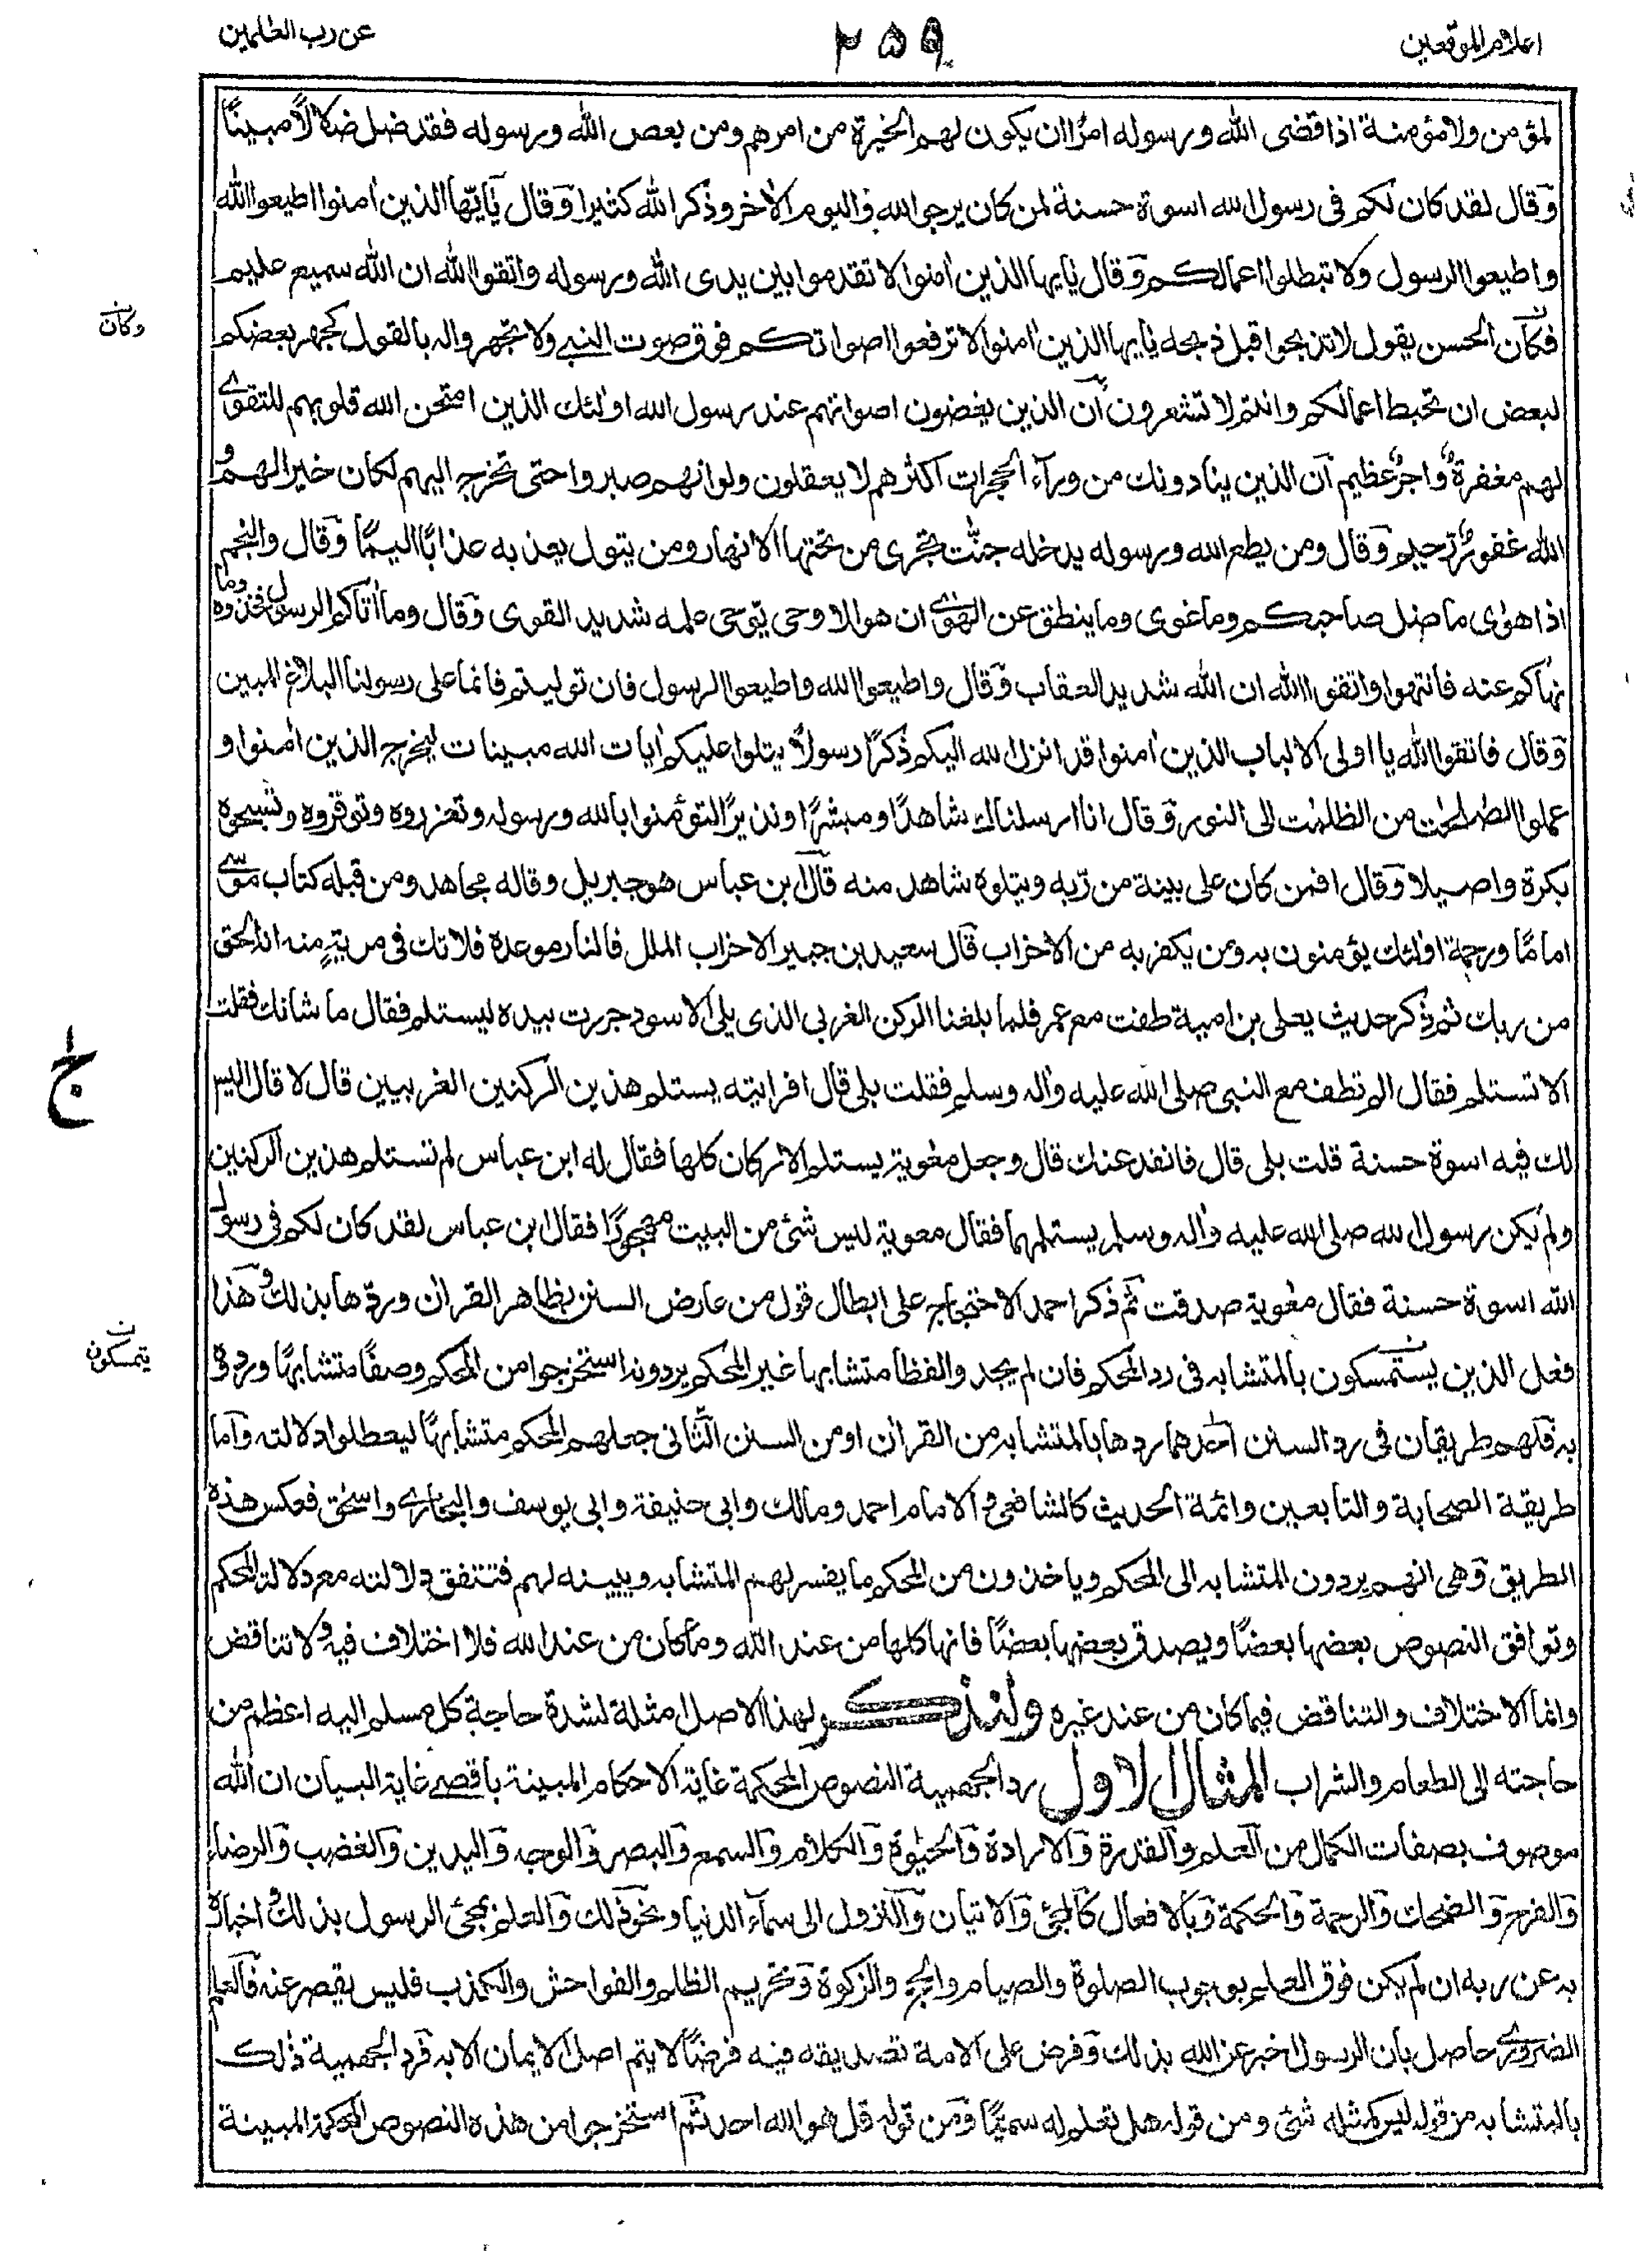 اعلام الموقعين
۲۵۹
عن رب العٰلمين
لمؤمن ولا مؤمنة اذا قضى الله ورسوله امرًا ان يكون لهم الخيرة من امرهم ومن يعص الله ورسوله فقد ضل ضلالًا مبينًا
وقال لقد كان لكم فى رسول الله اسوة حسنة لمن كان يرجو الله واليوم الاٰخر وذكر الله كثيرا وقال يٰايّها الذين اٰمنوا اطيعوا الله
واطيعوا الرسول ولا تبطلوا اعمالكم وقال يٰايها الذين اٰمنوا لا تقدموا بين يدى الله ورسوله واتقوا الله ان الله سميع عليم
فكان الحسن يقول لا تذبحوا قبل ذبحه يٰايها الذين اٰمنوا لا ترفعوا اصواتكم فوق صوت النبي ولا تجهروا له بالقول كجهر بعضكم
وكان
لبعض ان تحبط اعمالكم وانتم لا تشعرون ان الذين يغضون اصواتهم عند رسول الله اولئك الذين امتحن الله قلوبهم للتقوى
لهم مغفرةٌ واجرٌ عظيم ان الذين ينادونك من ورآء الحجرات اكثرهم لا يعقلون ولو انهم صبروا حتى تخرج اليهم لكان خيرا لهم و
الله غفورٌ رحيم وقال ومن يطع الله ورسوله يدخله جنّت تجرى من تحتها الانهار ومن يتول يعذبه عذابًا اليمًا وقال والنجم
اذا هوٰى ما ضل صاحبكم وما غوى وما ينطق عن الهوٰى ان هو الا وحى يّوحى علمه شديد القوى وقال وما اٰتاكم الرسول فخذوه وما
نهاكم عنه فانتهوا واتقوا الله ان الله شديد العقاب وقال واطيعوا الله واطيعوا الرسول فان توليتم فانما على رسولنا البلاغ المبين
وقال فاتقوا الله يا اولى الالباب الذين اٰمنوا قد انزل الله اليكم ذكرًا رسولًا يتلوا عليكم اٰيات الله مبينات ليخرج الذين اٰمنوا و
عملوا الصٰلحٰت من الظلمٰت الى النور وقال انا ارسلناك شاهدًا ومبشرًا ونذيرًا لتؤمنوا بالله ورسوله وتعزروه وتوقروه وتسبحوه
بكرة واصيلا وقال افمن كان على بينة من ربه ويتلوه شاهد منه قال ابن عباس هو جبريل وقاله مجاهد ومن قبله كتاب موسى
امامًا ورحمة اولئك يؤمنون به ومن يكفر به من الاحزاب قال سعيد بن جبير الاحزاب الملل فالنار موعده فلا تك فى مريةٍ منه انه الحق
من ربك ثم ذكر حديث يعلى بن امية طفت مع عمر فلما بلغنا الركن الغربى الذى يلى الاسود جررت بيده ليستلم فقال ما شانك فقلت
الا تستلم فقال الم تطف مع النبى صلى الله عليه واٰله وسلم فقلت بلى قال افرايته يستلم هذين الركنين الغربيين قال لا قال اليس
لك فيه اسوة حسنة قلت بلى قال فانفذ عنك قال وجعل معٰوية يستلم الاركان كلها فقال له ابن عباس لم تستلم هذين الركنين
ولم يكن رسول الله صلى الله عليه واٰله وسلم يستلمهما فقال معوية ليس شئ من البيت مهجورًا فقال ابن عباس لقد كان لكم فى رسول
الله اسوة حسنة فقال معٰوية صدقت ثم ذكر احمد الاحتجاج على ابطال قول من عارض السنن بظاهر القراٰن وردّها بذلك وهذا
فعل الذين يستمسكون بالمتشابه فى رد المحكم فان لم يجدوا لفظا متشابها غير المحكم يردونه استخرجوا من المحكم وصفًا متشابهًا وردوه
يتمسكون
به فلهم طريقان فى رد السنن احدهما ردها بالمتشابه من القراٰن او من السنن الثّانى جعلهم المحكم متشابهًا ليعطلوا دلالته واما
طريقة الصحابة والتابعين وائمة الحديث كالشافعى والامام احمد ومالك وابى حنيفة وابى يوسف والبخاري واسحٰق فعكس هذه
الطريق وهى انهم يردون المتشابه الى المحكم وياخذون من المحكم ما يفسر لهم المتشابه ويبينه لهم فتتفق دلالته مع دلالة المحكم
وتوافق النصوص بعضها بعضًا ويصدق بعضها بعضًا فانها كلها من عند الله وما كان من عند الله فلا اختلاف فيه ولا تناقض
وانما الاختلاف والتناقض فيما كان من عند غيره ولنذكر لهذا الاصل امثلة لشدة حاجة كل مسلم اليه اعظم من
حاجته الى الطعام والشراب المثال الاول رد الجهمية النصوص المحكمة غاية الاحكام المبينة باقصے غاية البيان ان الله
موصوف بصفات الكمال من العلم والقدرة والارادة والحيٰوة والكلام والسمع والبصر والوجه واليدين والغضب والرضاء
والفرح والضحك والرحمة والحكمة وبالافعال كالمجئ والاتيان والنزول الى سمآء الدنيا ونحو ذلك والعلم بمجئ الرسول بذلك واخباره
به عن ربه ان لم يكن فوق العلم بوجوب الصلوة والصيام والحج والزكوة وتحريم الظلم والفواحش والكذب فليس يقصر عنه فالعلم
الضروري حاصل بان الرسول اخبر عن الله بذلك وفرض على الامة تصديقه فيه فرضًا لا يتم اصل الايمان الا به فرد الجهمية ذٰلك
بالمتشابه من قوله ليس كمثله شئ ومن قوله هل تعلم له سميًّا ومن قوله قل هو الله احد ثم استخرجوا من هذه النصوص المحكمة المبينة
ج